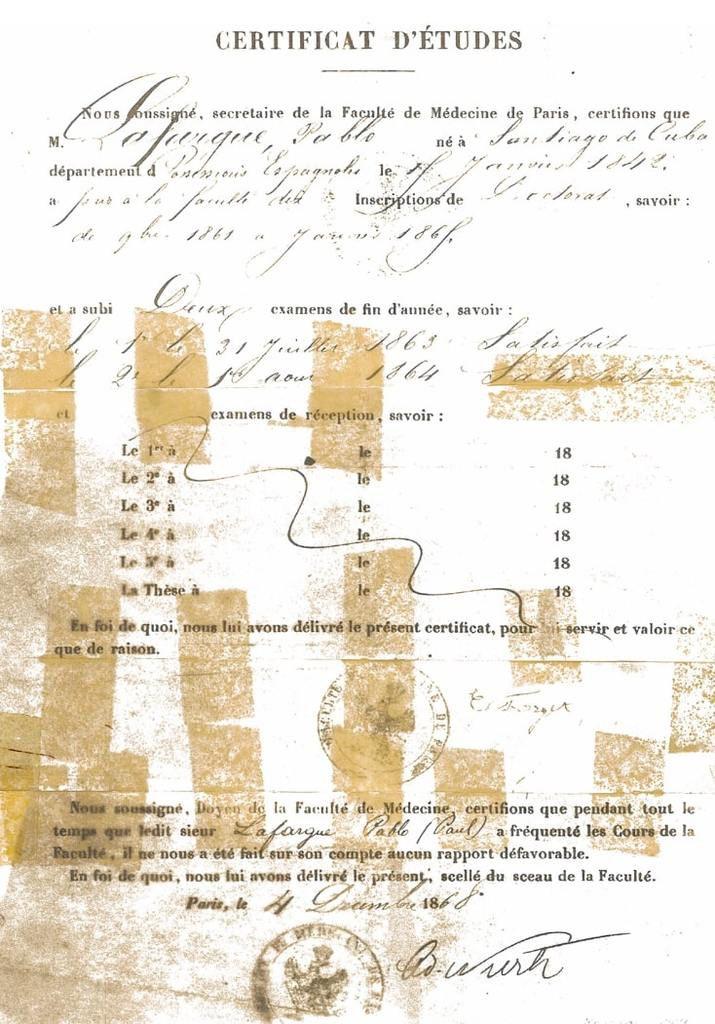 CERTIFICAT D'ÉTUDES
Nous soussigné, secretaire de la Faculté de Médecine de Paris, certifions que
M. Lafargue, Pablo né à Santiago de Cuba
département d Espagnoles le Janvier 1842.
a la faculté des Inscriptions de Doctorat, savoir :
de 9bre 1861 a Janvier 1865
et a subi Deux examens de fin d'année, savoir :
le 1er le 31 Juillet 1863 Satisfait
le 2e le 1er aout 1864 Satisfait
et examens de réception, savoir :
Le 1er à le 18
Le 2e à le 18
Le 3e à le 18
Le 4e à le 18
Le 5e à le 18
La Thèse à le 18
En foi de quoi, nous lui avons délivré le présent certificat, pour lui servir et valoir ce
que de raison.
FACULTÉ DE MÉDECINE DE PARIS
Nous soussigné, Doyen de la Faculté de Médecine, certifions que pendant tout le
temps que ledit sieur Lafargue Pablo (Paul) a fréquenté les Cours de la
Faculté, il ne nous a été fait sur son compte aucun rapport défavorable.
En foi de quoi, nous lui avons délivré le présent, scellé du sceau de la Faculté.
Paris, le 4 Décembre 1868
Ad. Wurtz